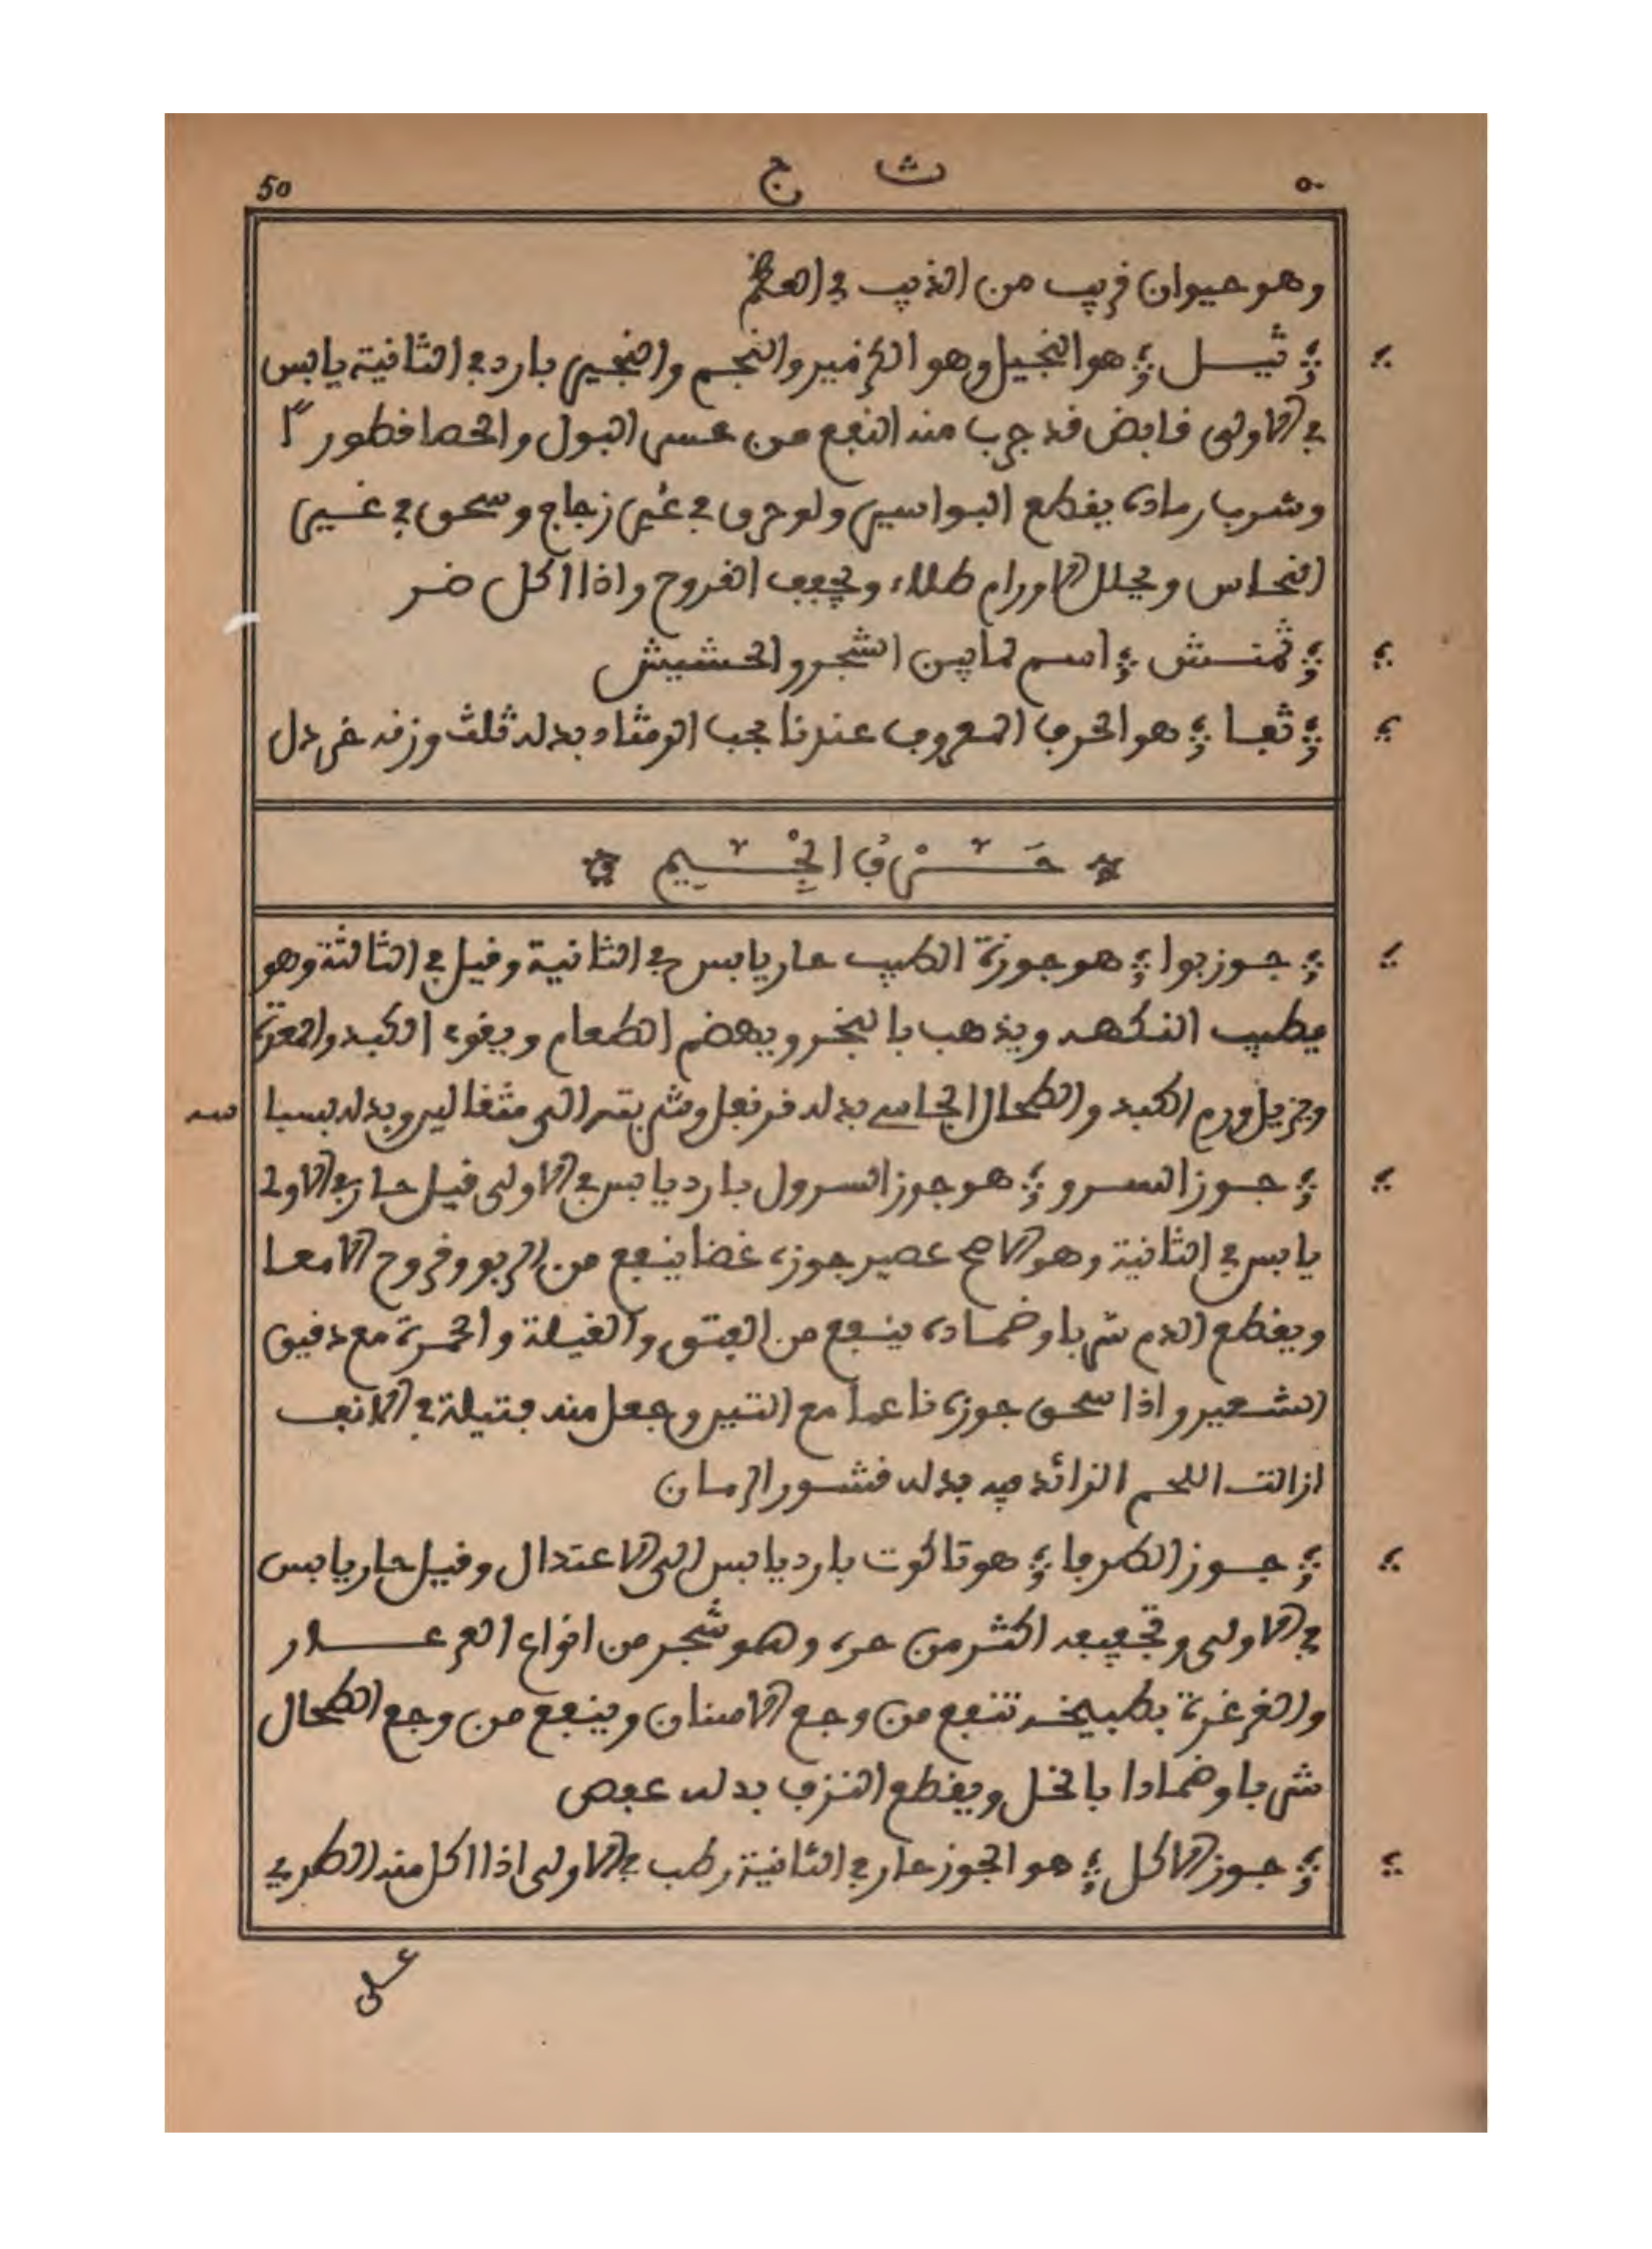 50 ث ج ٥٠
وهو حيوان فريب من الذيب في العظم
ثيـل هو النجيل وهو الكزمير والنجم والنجير بارد في الثانية يابس
في الاولى فابض فد جرب منه النفع من عسر البول والحصا فطورا
وشرب رماده يفطع البواسير ولو حرق في غير زجاج وسحق في غير
النحاس ويحلل الاورام طلاء ويجفف الفروح واذا اكل ضر
ثمنـش اسم لما بين الشجر والحشيش
ثفـا هو الحرف المعروف عندنا بحب الرمشاد بدله ثلث وزنه خردل
حَـرْفُ الجِـيـمِ
جـوز بوا هو جوزة الطيب حار يابس في الثانية وفيل في الثالثة وهو
يطيب النكهه ويذهب بالبخر ويهضم الطعام ويفوي الكبد والمعدة
ويزيل ورم الكبد والطحال الجاسي بدله فرنفل وشربته الى مثفالين وبدله بسبا سه
جـوز السـرو هو جوز السرول بارد يابس في الاولى فيل حار في الاولى
يابس في الثانية وهو الاصح عصير جوزه غضا ينفع من الربو وفروح الامعـا
ويفطع الدم شربا وضمـاده ينفع من الفتق والفيلة والحمرة مع دفيق
الشعير واذا سحق جوزه ناعما مع التين وجعل منه فتيلة في الانف
ازالت اللحم الزائد فيه بدله فشـور الرمـان
جـوز الطرفا هو تاكوت بارد يابس الى الاعتدال وفيل حار يابس
في الاولى وتجفيفه اكثر من حره وهو شجر من انواع العرعـار
والغرغرة بطبيخـه تنفع من وجع الاسنان وينفع من وجع الطحال
شربا وضمادا بالخل ويفطع النزف بدله عفص
جـوز الاكل هو الجوز حار في الثانية رطب في الاولى اذا اكل منه الطري
على